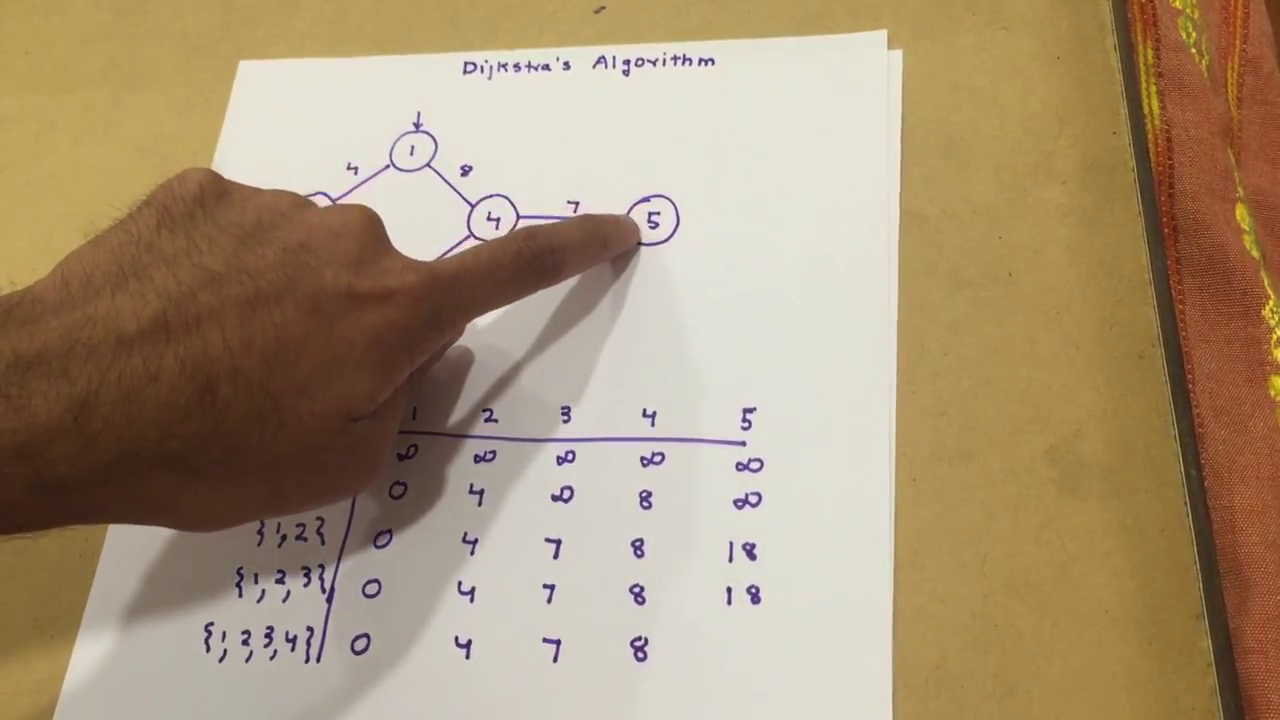 Dijkstra's Algorithm
1
4 8
4 7 5
1 2 3 4 5
∞ ∞ ∞ ∞ ∞
0 4 ∞ 8 ∞
{1,2} 0 4 7 8 18
{1,2,3} 0 4 7 8 18
{1,2,3,4} 0 4 7 8